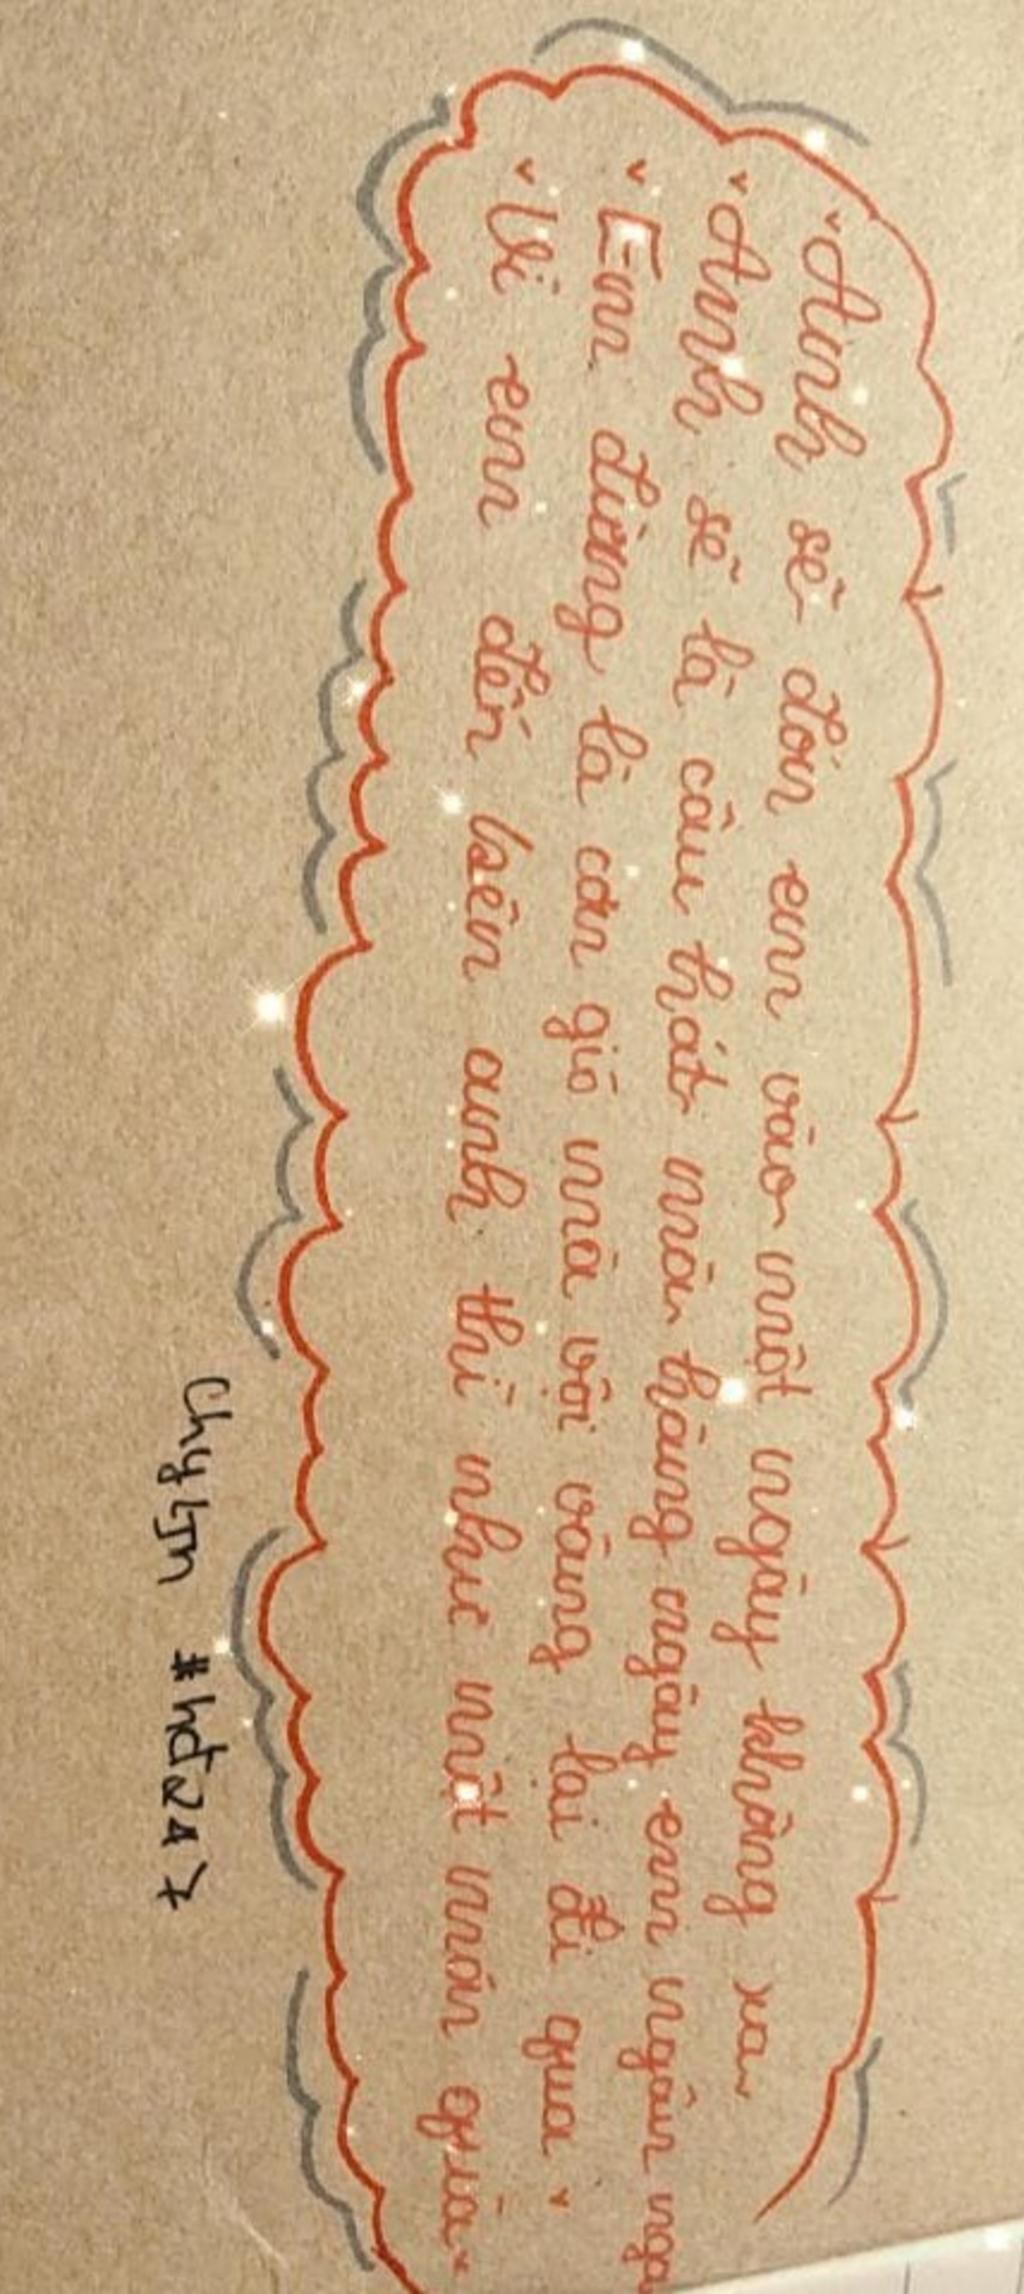 "Anh sẽ đón em vào một ngày không xa
"Anh sẽ là câu hát mà hàng ngày em ngân nga
"Em đừng là cơn gió mà vội vàng lại đi qua"
"Vì em đến bên anh thì như một món quà"
Chyltn #hđ247